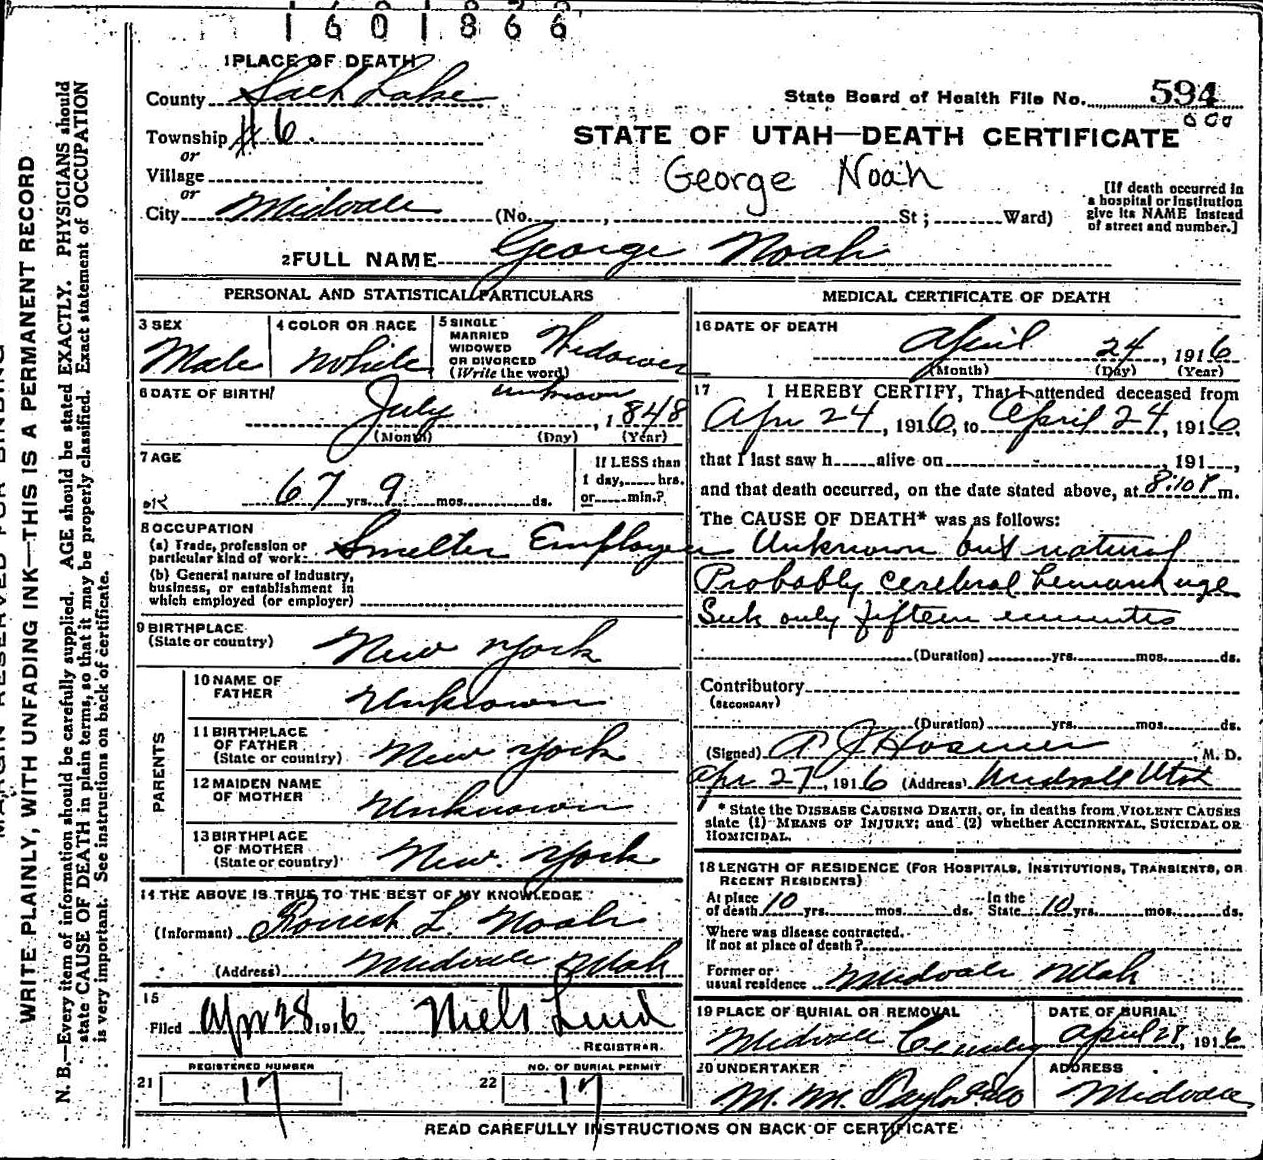 1601866
1 PLACE OF DEATH
County Salt Lake
State Board of Health File No. 594
Township #6.
or
STATE OF UTAH—DEATH CERTIFICATE
Village
or
George Noah
City Midvale (No. , St ; Ward)
[If death occurred in
a hospital or institution
give its NAME instead
of street and number.]
2 FULL NAME George Noah
PERSONAL AND STATISTICAL PARTICULARS
3 SEX
Male
4 COLOR OR RACE
White
5 SINGLE
MARRIED
WIDOWED
OR DIVORCED
(Write the word)
Widower
6 DATE OF BIRTH
July unknown, 1848
(Month) (Day) (Year)
7 AGE
67 yrs. 9 mos. ds.
If LESS than
1 day, hrs.
or min.?
8 OCCUPATION
(a) Trade, profession or
particular kind of work Smelter Employee
(b) General nature of industry,
business, or establishment in
which employed (or employer)
9 BIRTHPLACE
(State or country) New York
PARENTS
10 NAME OF
FATHER Unknown
11 BIRTHPLACE
OF FATHER
(State or country) New York
12 MAIDEN NAME
OF MOTHER Unknown
13 BIRTHPLACE
OF MOTHER
(State or country) New York
14 THE ABOVE IS TRUE TO THE BEST OF MY KNOWLEDGE
(Informant) Forrest L. Noah
(Address) Midvale Utah
15
Filed Apr 28 1916 Niels Lind
REGISTRAR.
21 REGISTERED NUMBER
17
22 NO. OF BURIAL PERMIT
17
MEDICAL CERTIFICATE OF DEATH
16 DATE OF DEATH
April 24, 1916
(Month) (Day) (Year)
17 I HEREBY CERTIFY, That I attended deceased from
Apr 24, 1916, to April 24, 1916,
that I last saw h alive on , 191 ,
and that death occurred, on the date stated above, at 8:10 P m.
The CAUSE OF DEATH* was as follows:
Unknown but natural
Probably cerebral hemorrhage
Sick only fifteen minutes
(Duration) yrs. mos. ds.
Contributory
(SECONDARY)
(Duration) yrs. mos. ds.
(Signed) A J Hosmer M. D.
Apr 27, 1916 (Address) Midvale Utah
* State the DISEASE CAUSING DEATH, or, in deaths from VIOLENT CAUSES
state (1) MEANS OF INJURY; and (2) whether ACCIDENTAL, SUICIDAL OR
HOMICIDAL.
18 LENGTH OF RESIDENCE (FOR HOSPITALS, INSTITUTIONS, TRANSIENTS, OR
RECENT RESIDENTS)
At place
of death 10 yrs. mos. ds.
In the
State 10 yrs. mos. ds.
Where was disease contracted.
If not at place of death?
Former or
usual residence Midvale Utah
19 PLACE OF BURIAL OR REMOVAL
Midvale Cemetery
DATE OF BURIAL
April 28, 1916
20 UNDERTAKER
M. M.
ADDRESS
Midvale
READ CAREFULLY INSTRUCTIONS ON BACK OF CERTIFICATE
MARGIN RESERVED FOR BINDING
WRITE PLAINLY, WITH UNFADING INK—THIS IS A PERMANENT RECORD
N. B.—Every item of information should be carefully supplied. AGE should be stated EXACTLY. PHYSICIANS should
state CAUSE OF DEATH in plain terms, so that it may be properly classified. Exact statement of OCCUPATION
is very important. See instructions on back of certificate.